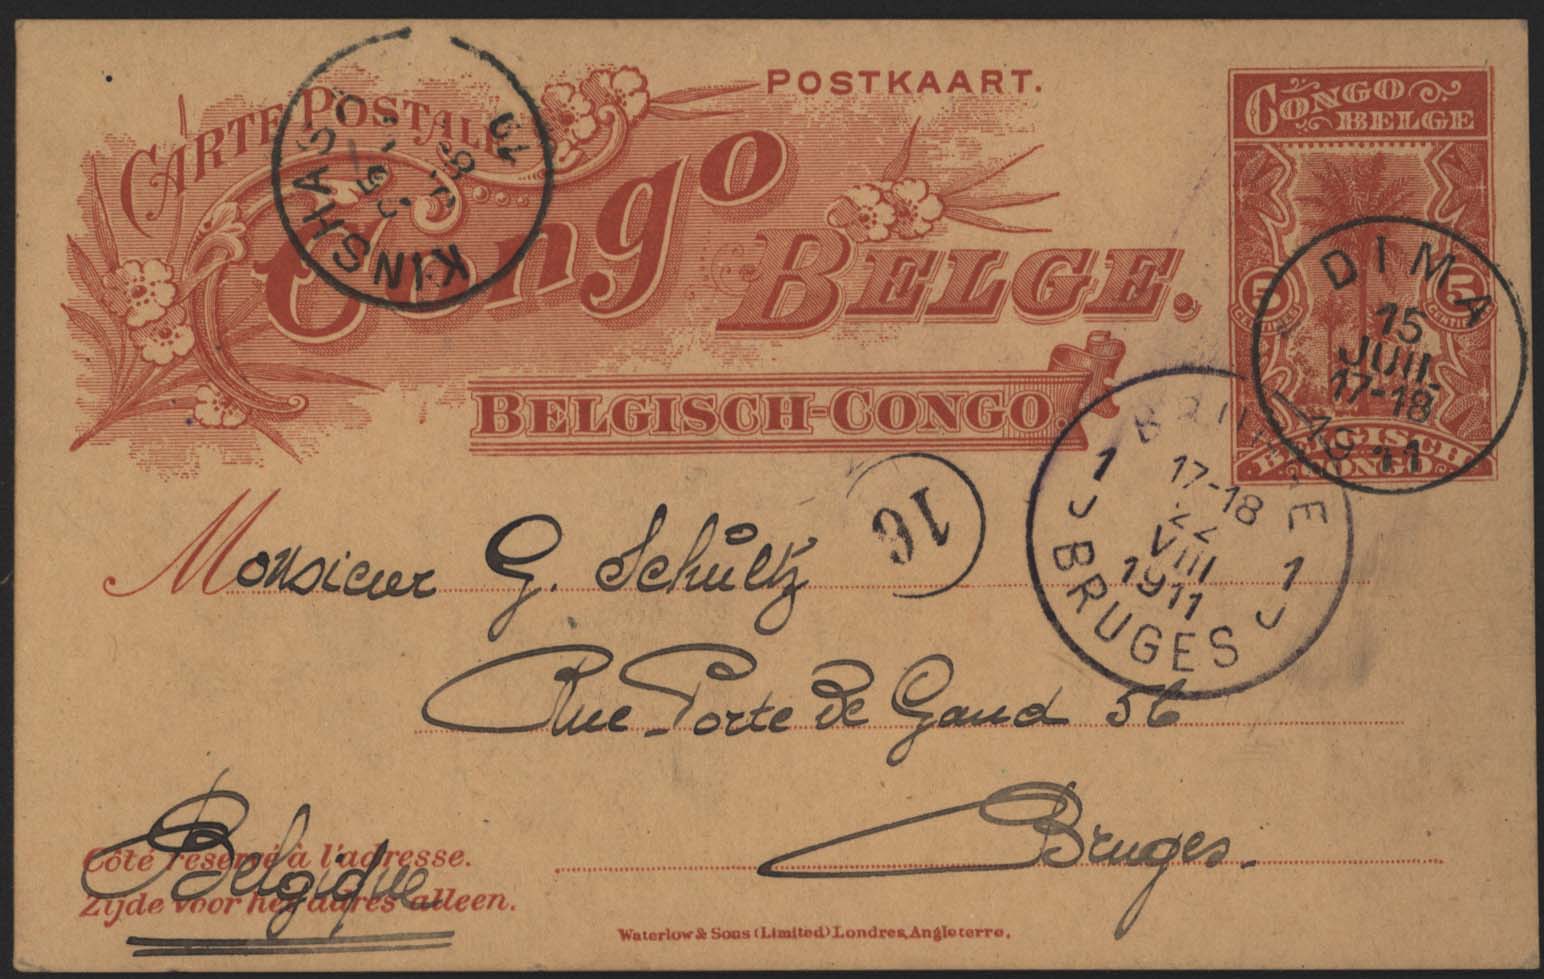 CARTE POSTALE
POSTKAART.
Congo
BELGE.
BELGISCH-CONGO.
CONGO
BELGE
5 5
BELGISCH
CONGO
KINSHASA
DIMA
15
JUIL
17-18
11
BRUGGE
1 1
17-18
22
VIII
1911
BRUGES
16
Monsieur G. Schültz
Rue Porte de Gand 56
Bruges.
Belgique
Côté réservé à l'adresse.
Zijde voor het adres alleen.
Waterlow & Sons (Limited) Londres, Angleterre.